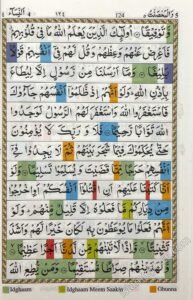 النسآء ٤ ١٢٤ 124 والمحصنت ٥
وَّتَوْفِيْقًا اُولٰٓئِكَ الَّذِيْنَ يَعْلَمُ اللّٰهُ مَا فِيْ قُلُوْبِهِمْ
فَاَعْرِضْ عَنْهُمْ وَعِظْهُمْ وَقُلْ لَّهُمْ فِيْٓ اَنْفُسِهِمْ قَوْلًاۢ
بَلِيْغًا وَمَآ اَرْسَلْنَا مِنْ رَّسُوْلٍ اِلَّا لِيُطَاعَ
بِاِذْنِ اللّٰهِ وَلَوْ اَنَّهُمْ اِذْ ظَّلَمُوْٓا اَنْفُسَهُمْ جَآءُوْكَ
فَاسْتَغْفَرُوا اللّٰهَ وَاسْتَغْفَرَ لَهُمُ الرَّسُوْلُ لَوَجَدُوا
اللّٰهَ تَوَّابًا رَّحِيْمًا فَلَا وَرَبِّكَ لَا يُؤْمِنُوْنَ
حَتّٰى يُحَكِّمُوْكَ فِيْمَا شَجَرَ بَيْنَهُمْ ثُمَّ لَا يَجِدُوْا
فِيْٓ اَنْفُسِهِمْ حَرَجًا مِّمَّا قَضَيْتَ وَيُسَلِّمُوْا تَسْلِيْمًا وَلَوْ
اَنَّا كَتَبْنَا عَلَيْهِمْ اَنِ اقْتُلُوْٓا اَنْفُسَكُمْ اَوِ اخْرُجُوْا
مِنْ دِيَارِكُمْ مَّا فَعَلُوْهُ اِلَّا قَلِيْلٌ مِّنْهُمْ وَلَوْ
اَنَّهُمْ فَعَلُوْا مَا يُوْعَظُوْنَ بِهٖ لَكَانَ خَيْرًا لَّهُمْ وَاَشَدَّ
تَثْبِيْتًا وَّاِذًا لَّاٰتَيْنٰهُمْ مِّنْ لَّدُنَّآ اَجْرًا عَظِيْمًا
وَّلَهَدَيْنٰهُمْ صِرَاطًا مُّسْتَقِيْمًا وَمَنْ يُّطِعِ اللّٰهَ
Idghaam Idghaam Meem Saakin Ghunna